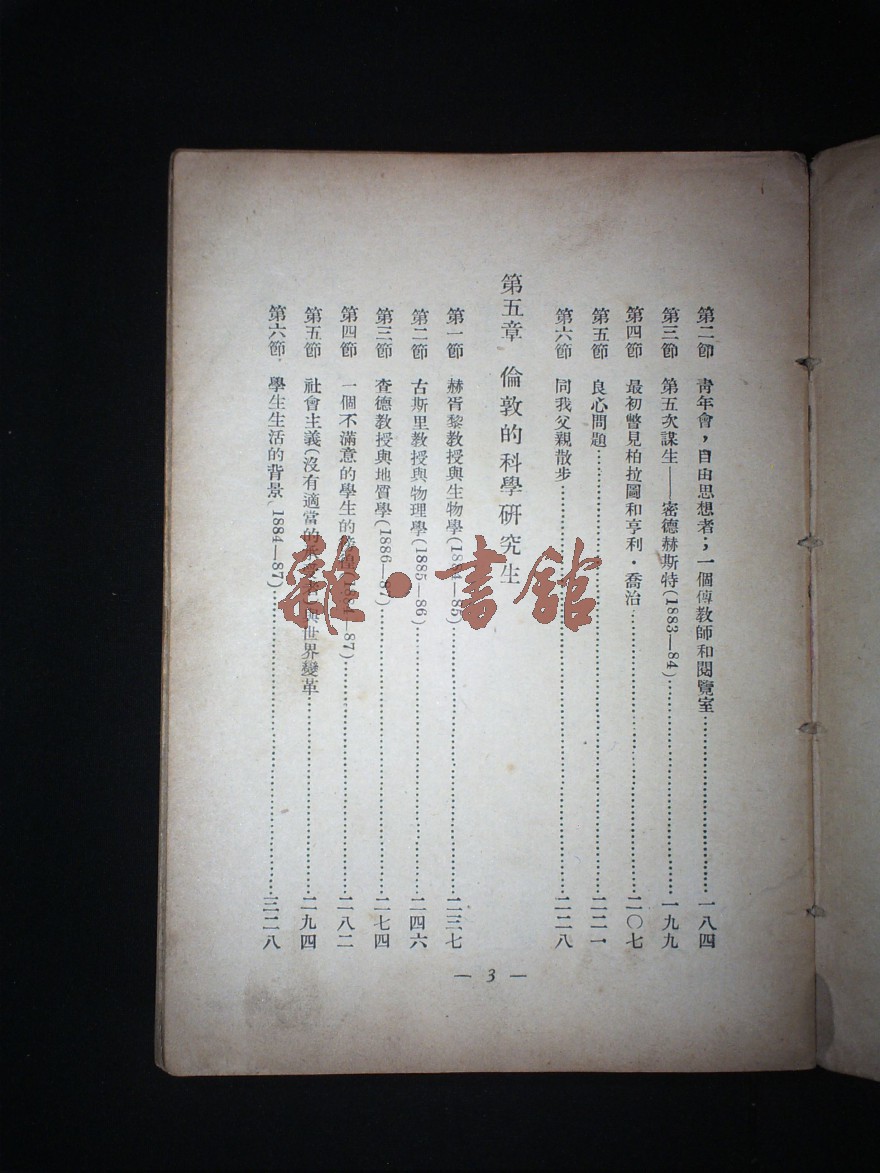 第二節 青年會，自由思想者；一個傳教師和閱覽室……一八四
第三節 第五次謀生——密德赫斯特(1883—84)……一九九
第四節 最初瞥見柏拉圖和亨利·喬治……二〇七
第五節 良心問題……二二一
第六節 同我父親散步……二二八
第五章 倫敦的科學研究生
第一節 赫胥黎教授與生物學(1884—85)……二三七
第二節 古斯里教授與物理學(1885—86)……二四六
第三節 查德教授與地質學(1886—87)……二七四
第四節 一個不滿意的學生的 (1884—87)……二八二
第五節 社會主義(沒有適當的 與世界變革……二九四
第六節 學生生活的背景(1884—87)……三二八
— 3 —
雜·書館